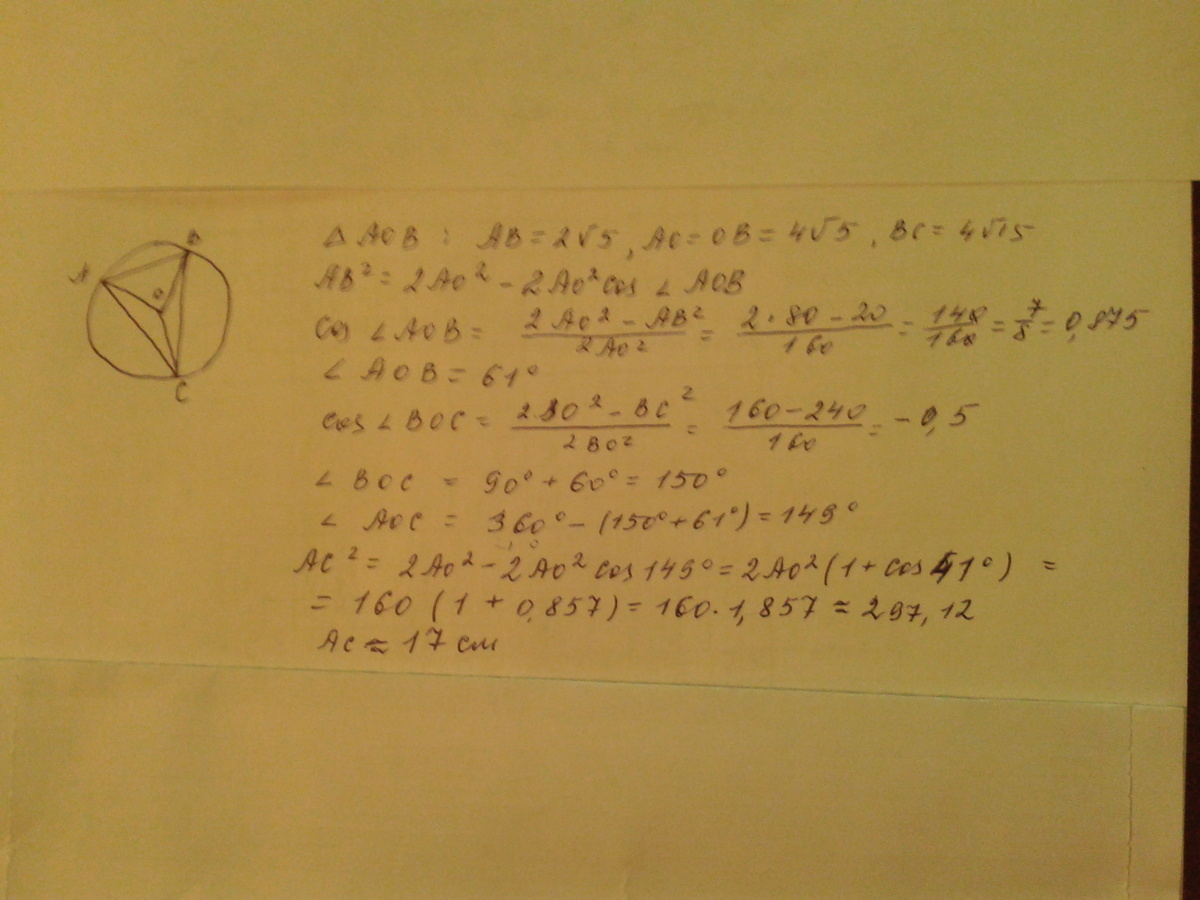 A
B
O
C
△ AOB : AB = 2√5, AO = OB = 4√5, BC = 4√15
AB² = 2AO² - 2AO² cos ∠ AOB
cos ∠ AOB = (2AO² - AB²)/(2AO²) = (2·80 - 20)/160 = 140/160 = 7/8 = 0,875
∠ AOB = 61°
cos ∠ BOC = (2BO² - BC²)/(2BO²) = (160 - 240)/160 = -0,5
∠ BOC = 90° + 60° = 150°
∠ AOC = 360° - (150° + 61°) = 149°
AC² = 2AO² - 2AO² cos 149° = 2AO² (1 + cos 51°) =
= 160 (1 + 0,857) = 160 · 1,857 ≈ 297,12
AC ≈ 17 см